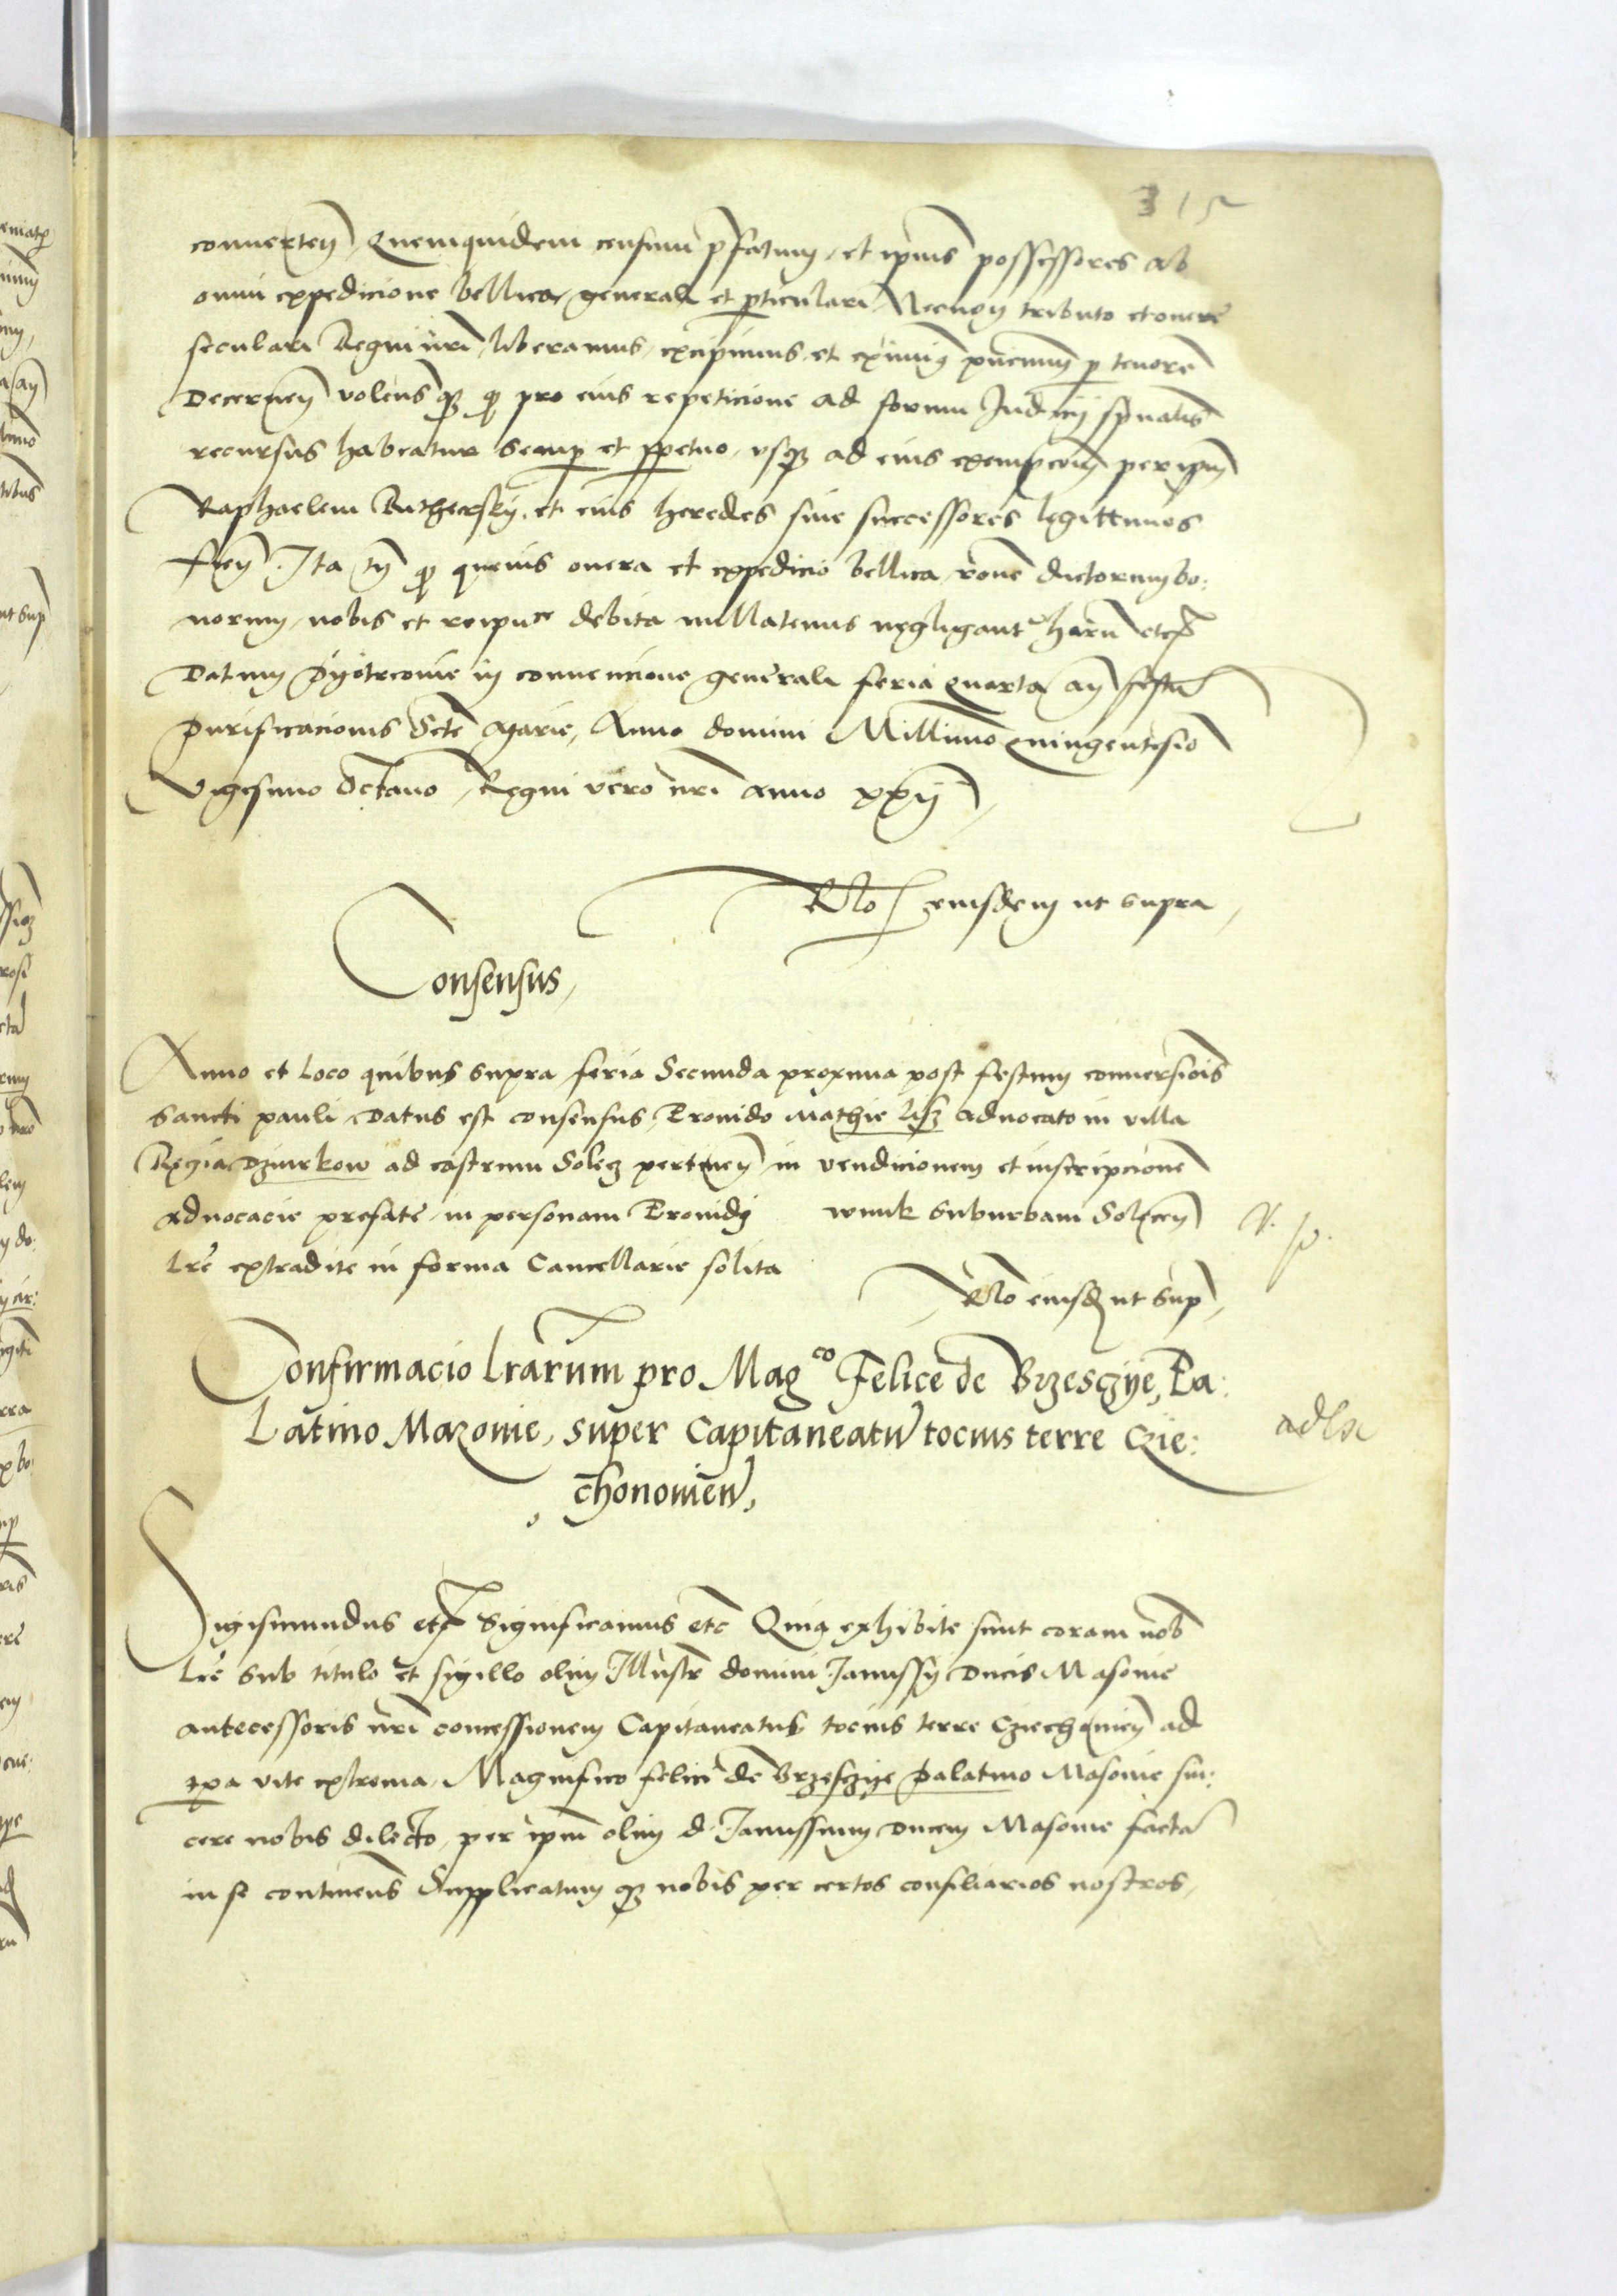 315
conuerten Quemquidem censum p̄fatum, et ipius possessores ab
omni expedicione bellica, generali et particulari Necnon tributo et onere
seculari Regni nr̄i, liberamus, excipimus, et eximim⁹ pn̄cium p tenorē
Decernen̄ volens qꝫ ꝙ pro eius repeticione ad forum Judicij spūalis
recursus habeatur semp et ppetuo, vsqꝫ ad eius exempcōm̄ per ipm̄
Raphaelem et eius heredes siue successores legittimos
fien̄ Ita tn̄ ꝙ queuis onera et expedicio bellica, rōne dictorum bo:
norum, nobis et reipu^ce debita nullatenus negligant^r harū etcꝭ
Datum Pyotrcouie in conuencione generali feria quarta an̄ festū
Purificacionis Scte Marie, Anno domini Millīmo quingentesīo
Vigesimo Octauo, Regni vero nr̄i anno xxij
Rlo eiusdem ut supra,
Consensus,
Anno et loco quibus supra feria Secunda proxima post festum conuersiōis
Sancti pauli, Datus est consensus, Prouido Mathie Lisz aduocato in villa
Regia Dzurkow ad castrum Solecz pertinen̄ in vendicionem et inscripcionē
aduocacie prefate, in personam Prouidi wnuk suburbani Solecen̄
Lrē extradite in forma Cancellarie solita
Rlo eiusdꝫ ut sup,
Confirmacio Lrārum pro Mag^co Felice de Brzesczye, Pa:
Latino Mazouie, super Capitaneatū tocius terre Czie:
chonouien̄,
Sigismundus etcꝭ Significamus etc̄ Quia exhibite sunt coram nob̄
Lrē sub titulo et sigillo olim Illustr̄ domini Janussy Ducis Masouie
antecessoris nr̄i concessionem Capitaneatus tocius terre Cziechonien̄ ad
tpa vite extrema, Magnifico felici de Brzesczye Palatino Masouie sin:
cere nobis dilecto, per ipm̄ olim d. Janussium Ducem Masouie factā
in se continens Supplicatum qꝫ nobis per certos consiliarios nostros,